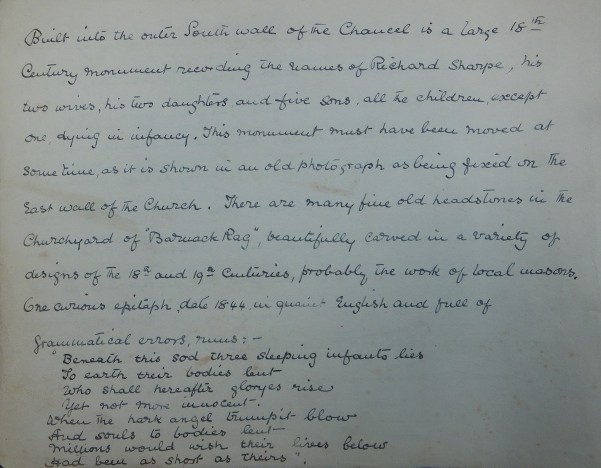 Built into the outer South wall of the Chancel is a large 18th
Century monument recording the names of Richard Sharpe, his
two wives, his two daughters and five sons, all the children, except
one, dying in infancy. This monument must have been moved at
some time, as it is shown in an old photograph as being fixed on the
East wall of the Church. There are many fine old headstones in the
Churchyard of "Barnack Rag", beautifully carved in a variety of
designs of the 18th and 19th Centuries, probably the work of local masons.
One curious epitaph, date 1844, in quaint English and full of
grammatical errors, runs: -
"Beneath this sod three sleeping infants lies
To earth their bodies lent
Who shall hereafter gloryes rise
Yet not more innocent.
When the hark angel trumpit blow
And souls to bodies lent
Millions would wish their lives below
Had been as short as theirs".